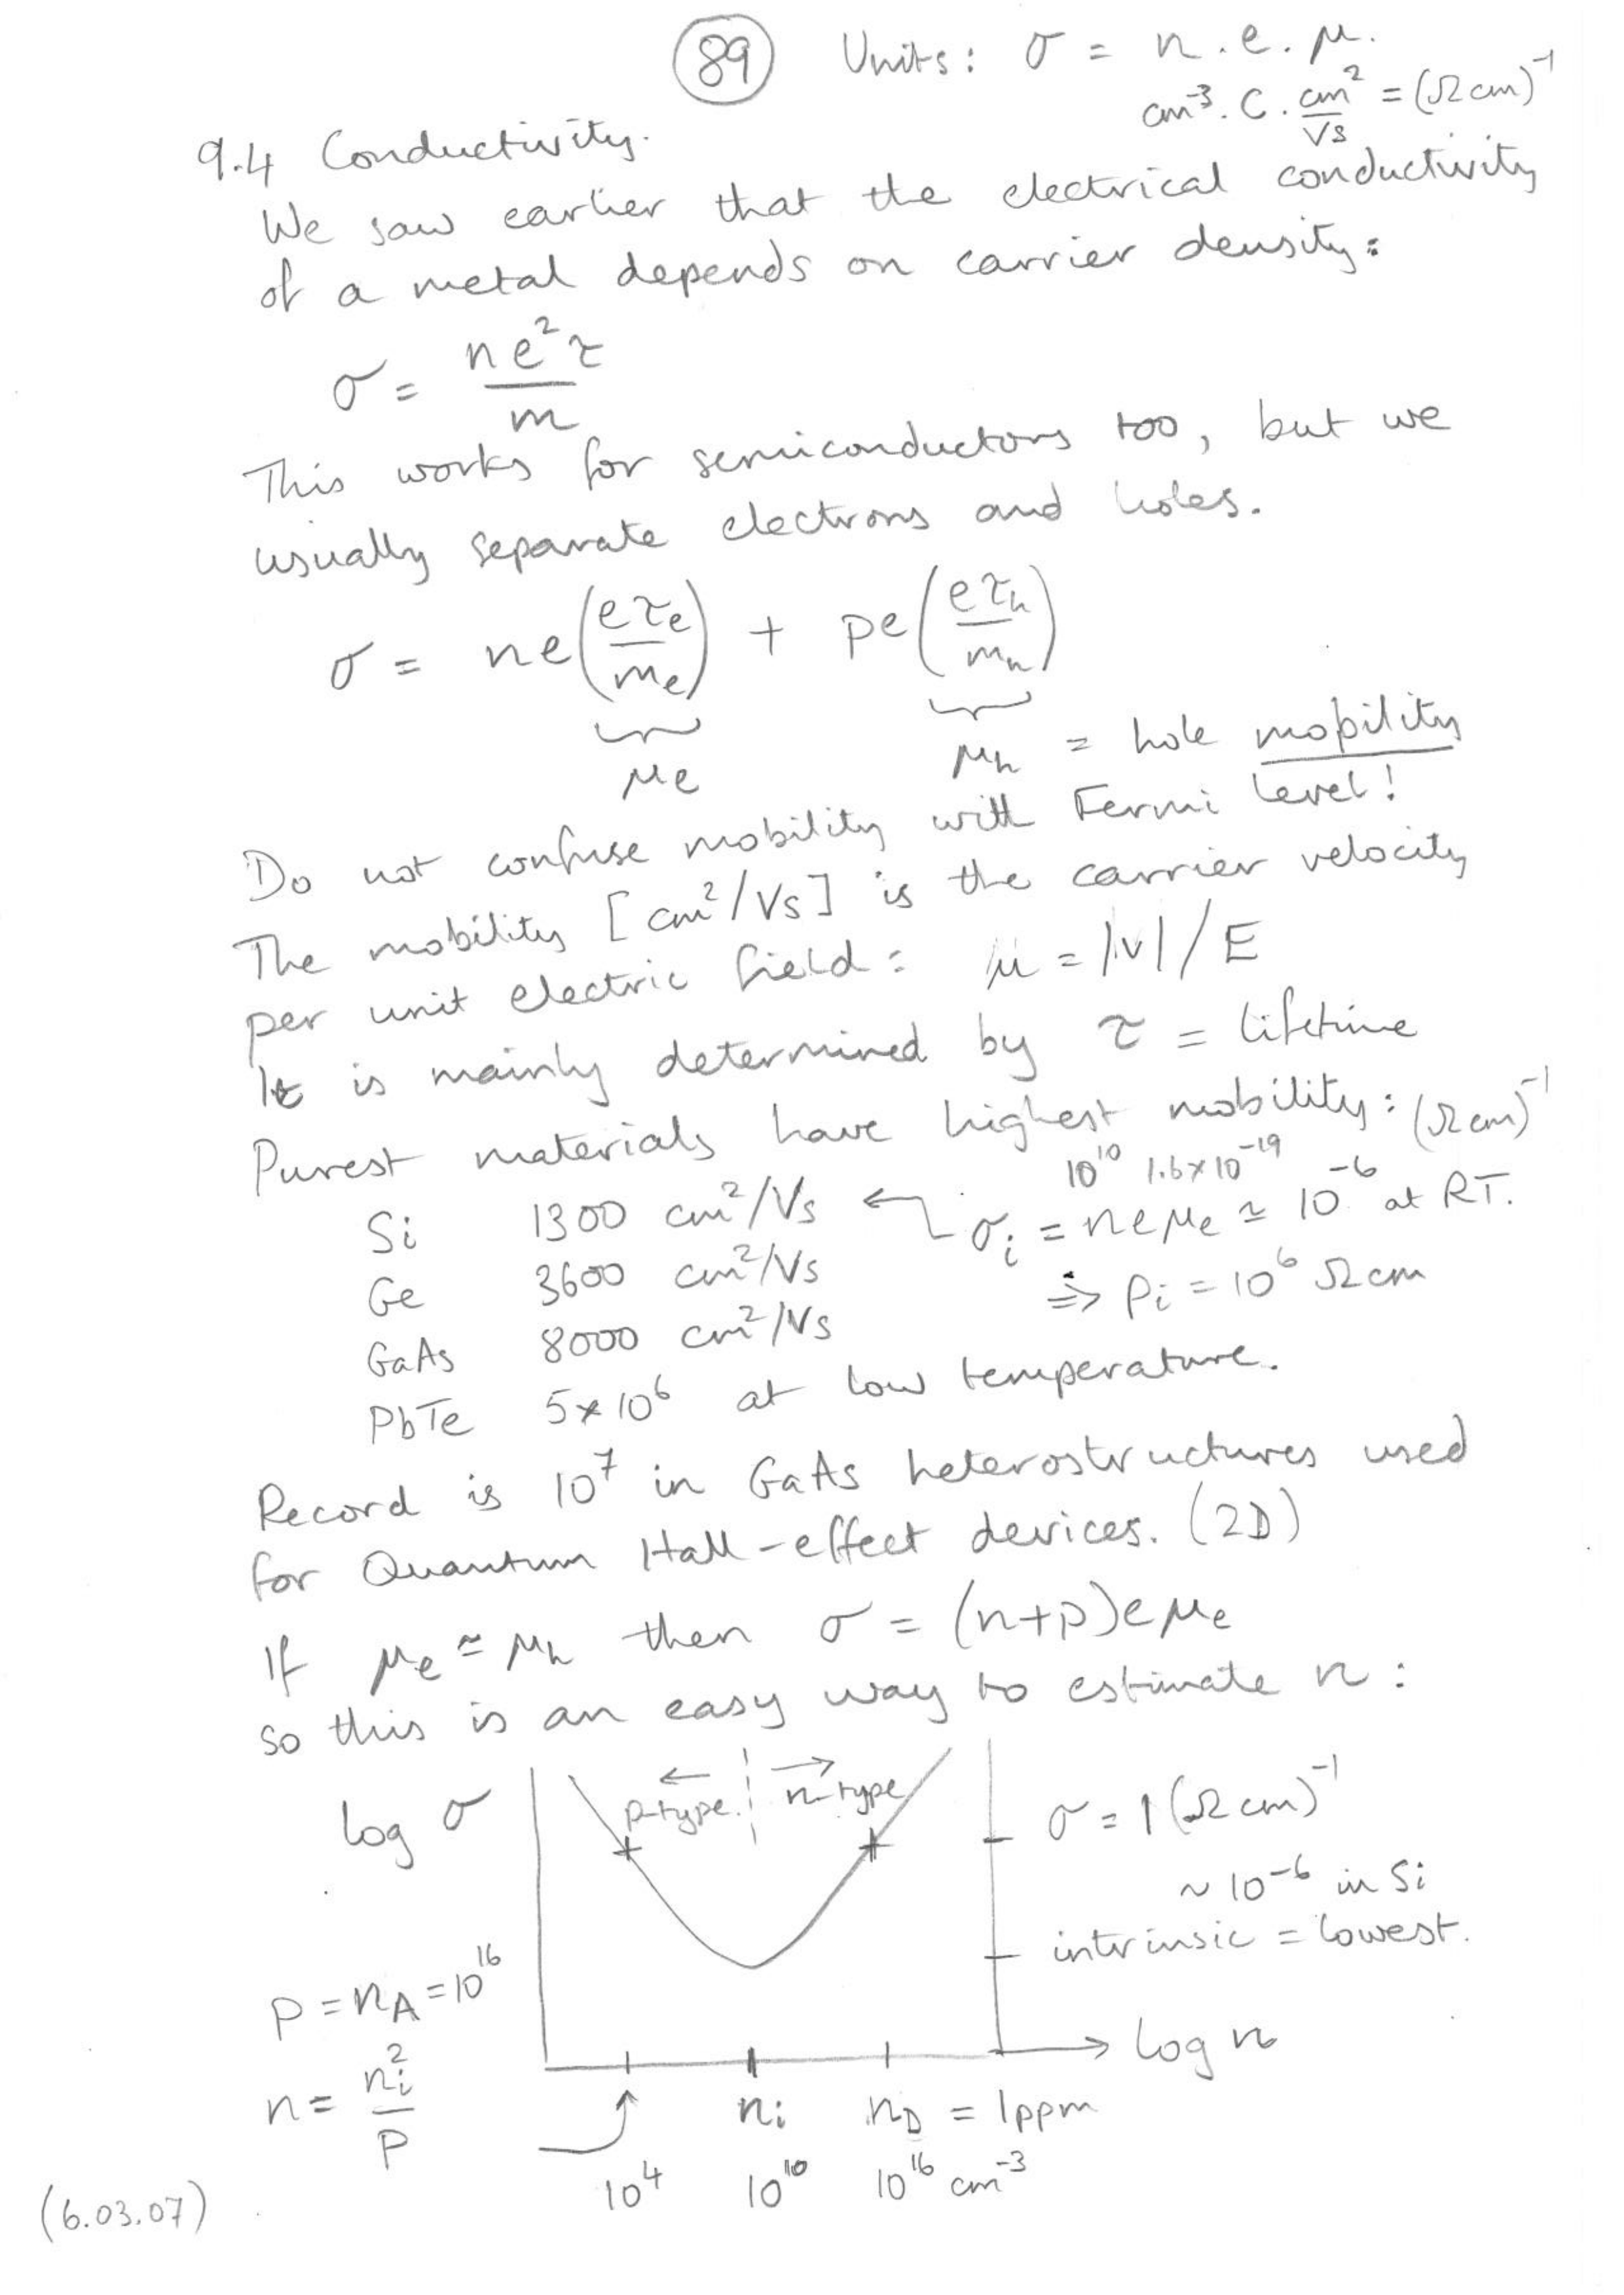 89 Units: σ = n . e . μ.
cm⁻³ . C . cm²/Vs = (Ω cm)⁻¹
9.4 Conductivity.
We saw earlier that the electrical conductivity
of a metal depends on carrier density:
σ = ne²τ/m
This works for semiconductors too, but we
usually separate electrons and holes.
σ = ne(eτe/me) + pe(eτh/mh)
μe μh = hole mobility
Do not confuse mobility with Fermi level!
The mobility [cm²/Vs] is the carrier velocity
per unit electric field: μ = |v| / E
It is mainly determined by τ = lifetime
Purest materials have highest mobility: (Ω cm)⁻¹
10¹⁰ 1.6×10⁻¹⁹
Si 1300 cm²/Vs ← σi = neμe ≃ 10⁻⁶ at RT.
Ge 3600 cm²/Vs ⇒ ρi = 10⁶ Ω cm
GaAs 8000 cm²/Vs
PbTe 5×10⁶ at low temperature.
Record is 10⁷ in GaAs heterostructures used
for Quantum Hall-effect devices. (2D)
If μe ≃ μh then σ = (n+p)eμe
so this is an easy way to estimate n:
log σ
← p-type. → n-type
σ = 1 (Ω cm)⁻¹
~ 10⁻⁶ in Si
intrinsic = lowest.
p = nA = 10¹⁶
→ log n
n = ni²/p
ni nD = 1ppm
10⁴ 10¹⁰ 10¹⁶ cm⁻³
(6.03.07)